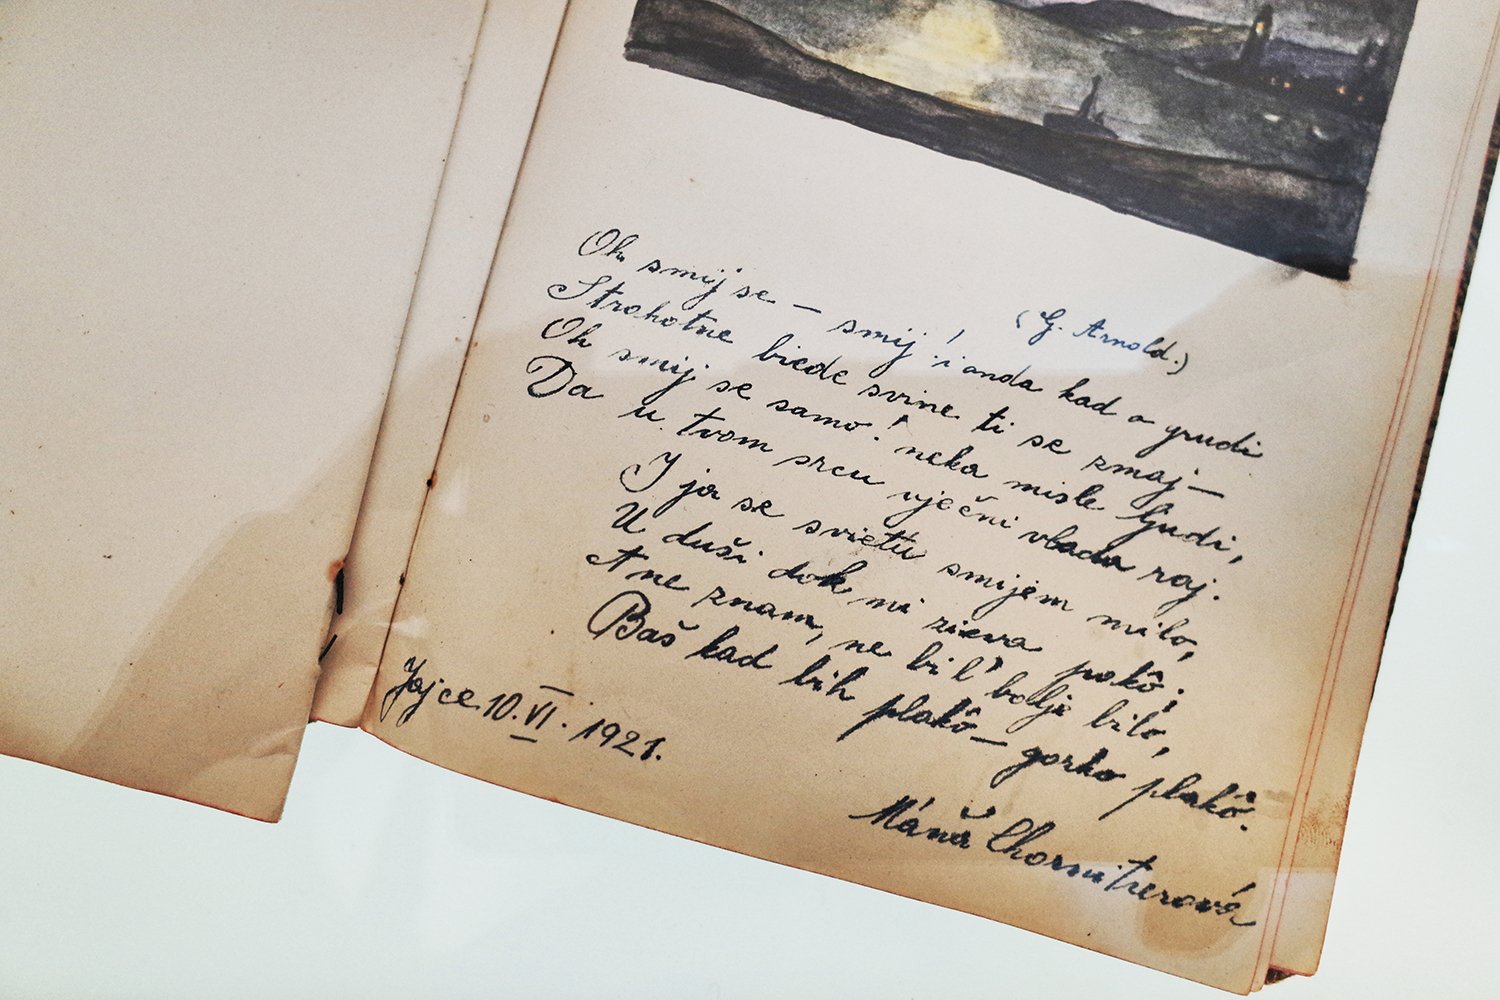 (G. Arnold.)
Oh smij se — smij! i onda kad o grudi
Strohotne biede svine ti se zmaj—
Oh smij se samo! neka misle ljudi,
Da u tvom srcu vječni vlada raj.
I ja se svietu smijem milo,
U duši dok mi zieva pakô;
A ne znam, ne bil' bolje bilo,
Baš kad bih plakô — gorko plakô.
Jajce 10. VI. 1921.
Máňa